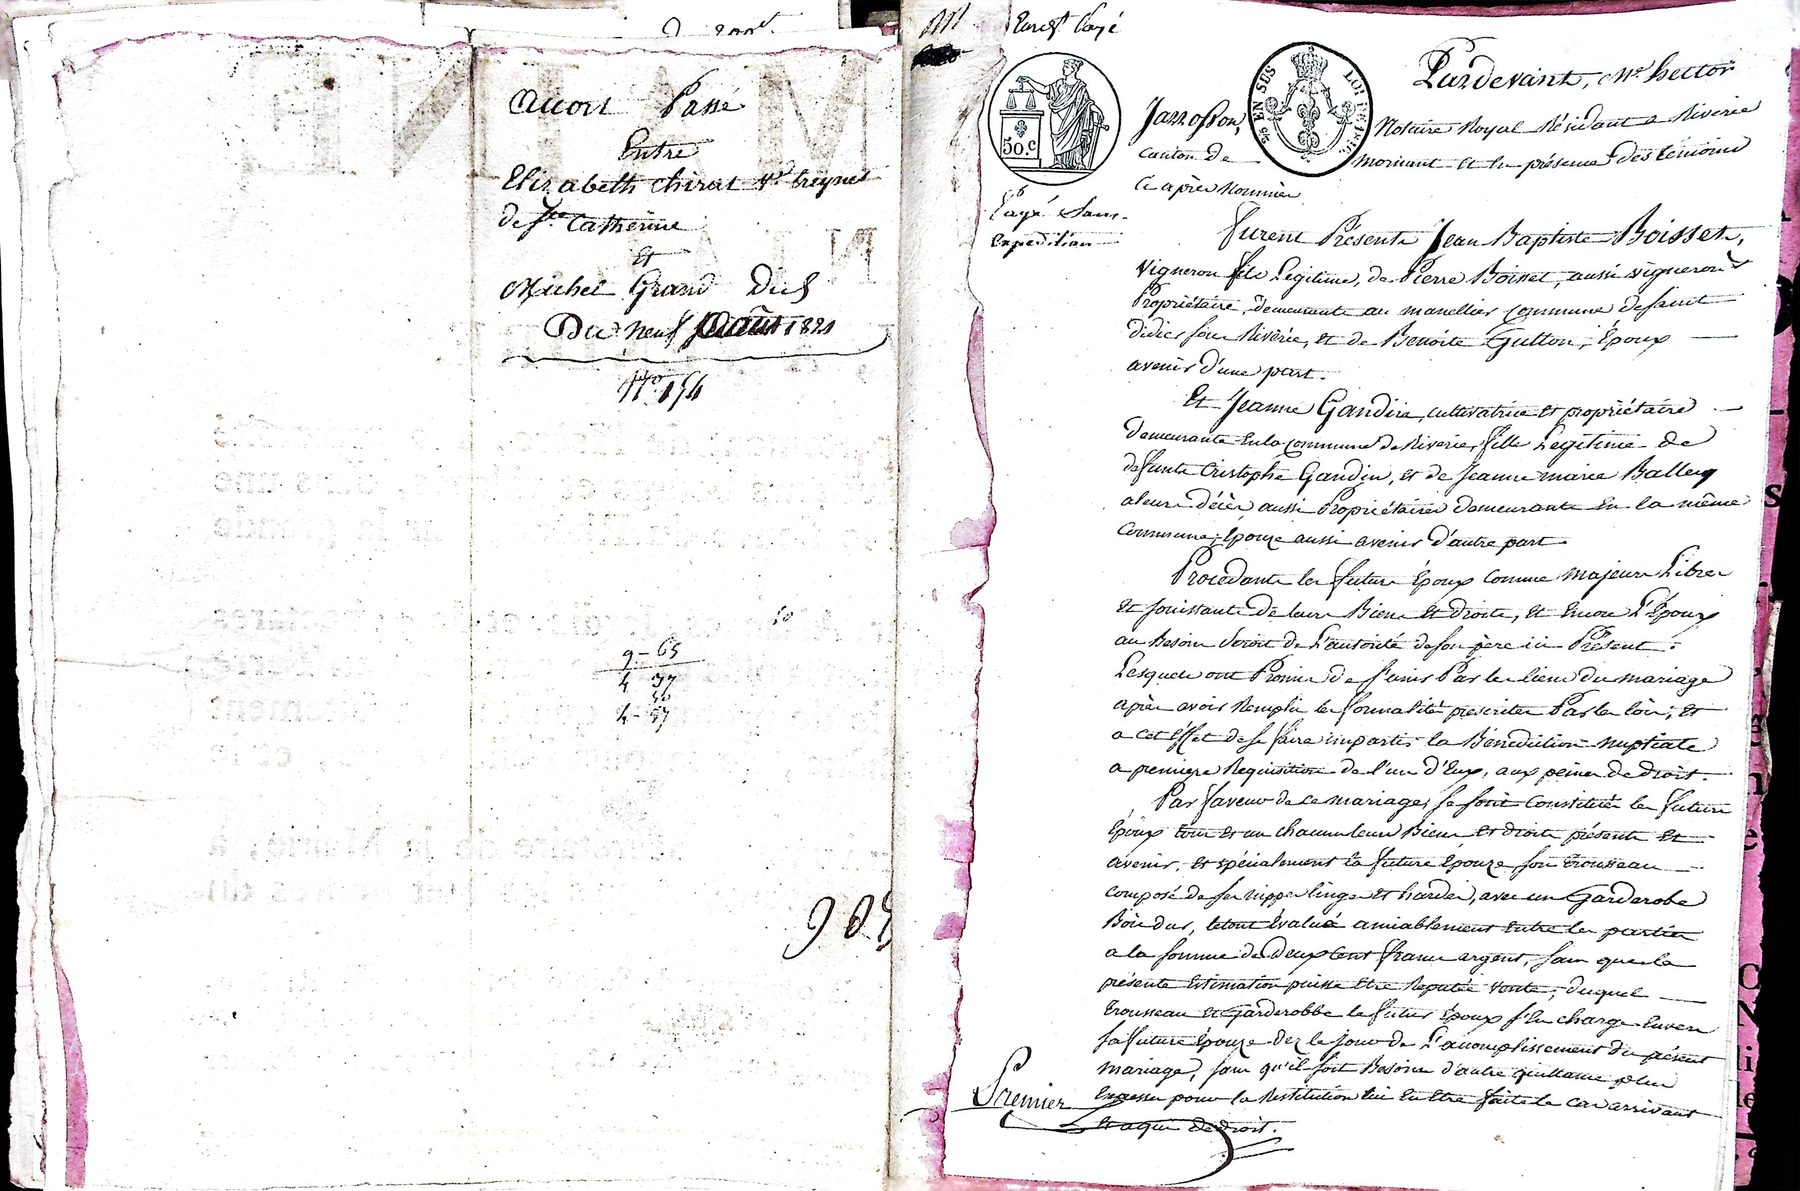 Accort Passé
Entre
Elizabeth chirat Ve treynet
de Ste Catherine
Et
Michel Grand Dich
Du neuf août 1821
No 154
9-65
4 37
4-57
Enregt Payé
50.c
EN SUS
LOI DE 1816
Pardevant, Me hector
Jazzosson,
Notaire Royal Résidant a Riverie
canton de
mornant et en présence des témoins
Ci après nommés
Payé Sans
Expedition
furent Présents Jean Baptiste Boisset,
Vigneron fils Legitime, de Pierre Boisset, aussi vigneron
Propriétaire, demeurants au manellier commune de saint
didier sous Riverie, et de Benoite Gutton, Époux
avenir d'une part.
Et Jeanne Gandin, cultivatrice et propriétaire
demeurante en la commune de Riverie, fille Legitime de
defunts Cristophe Gandin, et de Jeanne marie Balley
a leurs décès aussi Propriétaires demeurants en la même
Commune, Épouze aussi avenir d'autre part.
Procedants les futurs Époux comme majeurs Libres
et jouissants de leurs Biens et droits, et encore L'Époux
au Besoin Seroit de L'autorité de son père ici Présent.
Lesquels ont Promis de s'unir Par les liens du mariage
après avoir Rempli les formalités prescrites Par les lois, et
a cet Effet de se faire impartir la Bénédiction nuptiale
a premiere Requisition de l'un d'Eux, aux peines de droit.
Par faveur de ce mariage, se sont constitués les futurs
Époux tous et un chacun leurs Biens, et droits présents et
avenir, et spécialement la future Épouze son trousseau
composé de ses nippes linges et hardes, avec un Garderobe
Bois dur, le tout évalué amiablement entre les parties
a la somme de deux cent francs argent, sans que la
présente Estimation puisse Etre Reputée vente, duquel
trousseau et Garderobbe le futur Époux s'en charge Envers
sa future Épouze dez le jour de L'accomplissement du présent
mariage, sans qu'il soit Besoin d'autre quittance plus
Expresse pour la Restitution lui en Etre faite le cas arrivant
Premier
et a qui de droit.